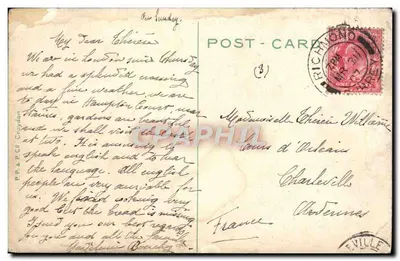 On Sunday
My Dear Thérèse
We are in London since Thursday
we had a splendid crossing
and a fine weather, we are
to day in Hampton Court near
gardens are beautiful
and we shall visit the
at two. It is amusing to
speak english and to hear
the language. All english
people are very amiable for
us. We find cooking very
good but the bread is missing
I send you our best regards
for you and all the family
Madeleine
POST - CARD
(8)
RICHMOND
SURREY
Mademoiselle Thérèse Williaume
Cours d'Orléans
Charleville
Ardennes
France
EVILLE
P.P. & P.C.F. Croydon
DELCAMPE